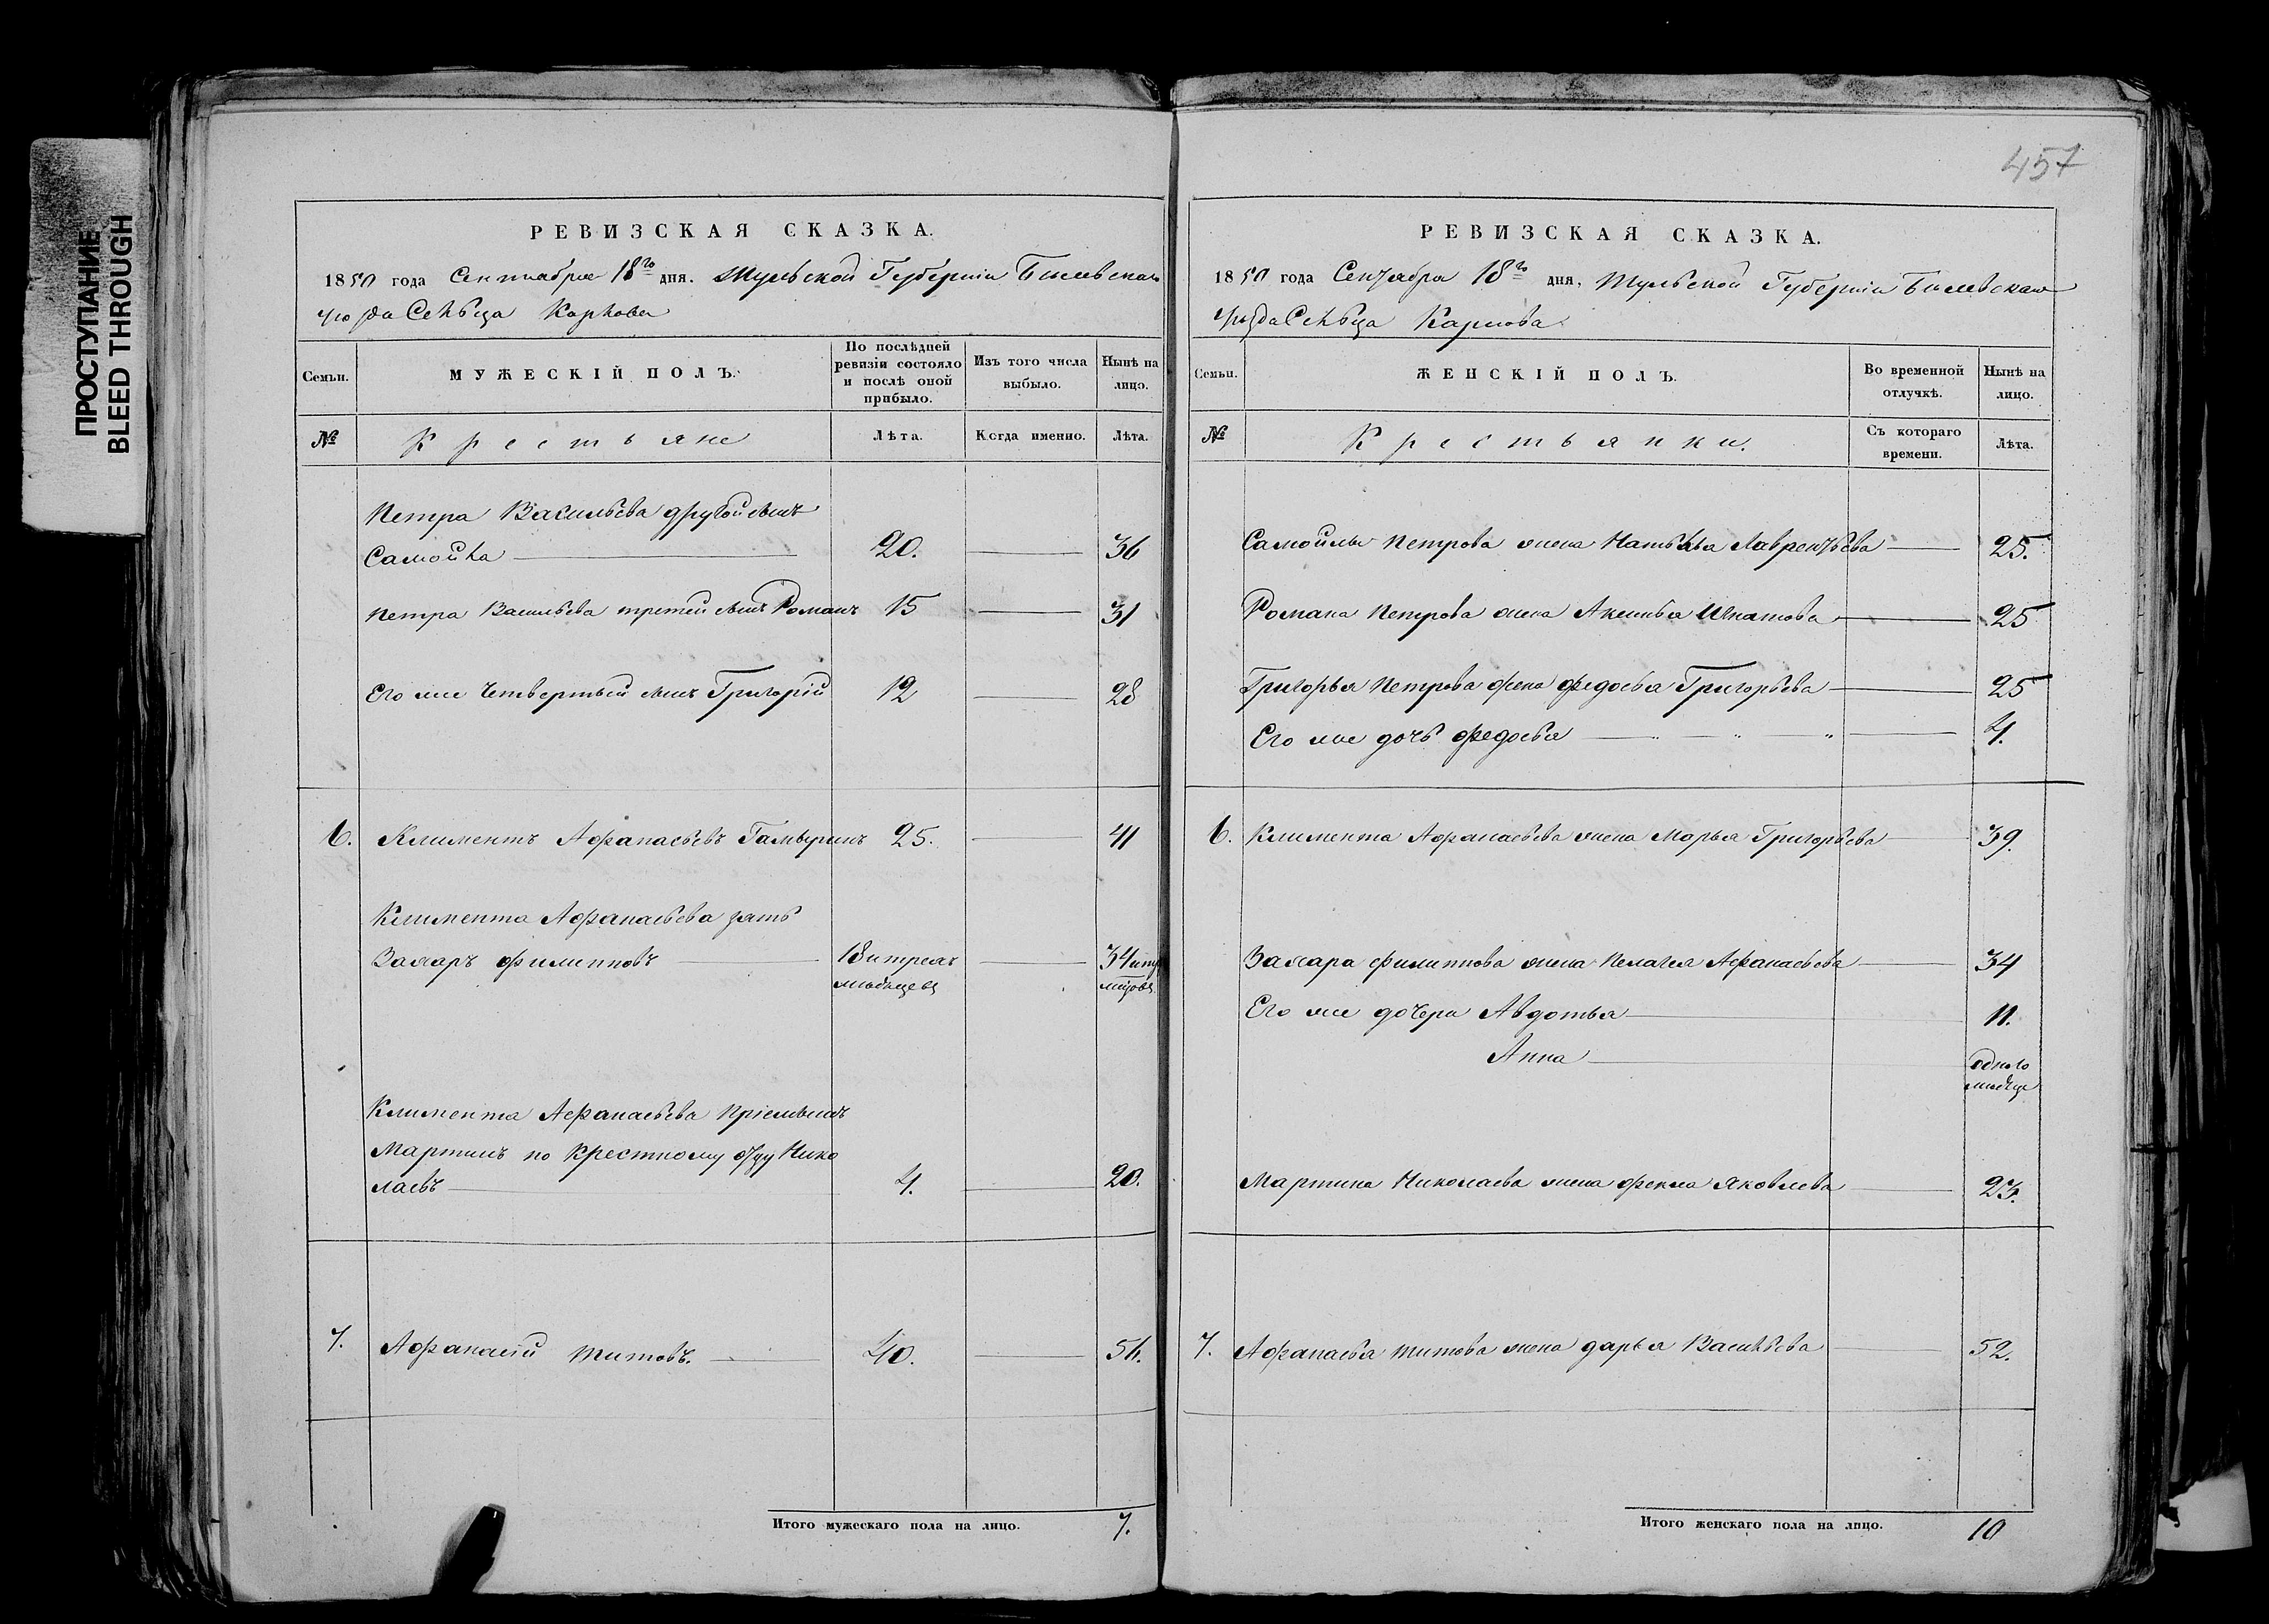 ПРОСТУПАНИЕ
BLEED THROUGH
РЕВИЗСКАЯ СКАЗКА.
1850 года Сентября 18го дня. Тульской Губернiи Бѣлевскаго
уѣзда Сельца Карпова
Семьи. МУЖЕСКІЙ ПОЛЪ. По послѣдней ревизіи состояло и послѣ оной прибыло. Изъ того числа выбыло. Нынѣ на лицо.
№ Крестьяне Лѣта. Когда именно. Лѣта.
Петра Васильева другой сынъ
Самойла 20. 36
Петра Васильева третей сынъ Романъ 15 31
Его же четвертый сынъ Григорій 12 28
6. Климентъ Афанасьевъ 25. 41
Климента Афанасьева зять
Захаръ Филиповъ 18 и трехъ 34 и
месецевъ
Климента Афанасьева пріемышъ
Мартинъ по крестному отцу Нико
лаевъ 4. 20.
7. Афанасій Титовъ. 40. 56.
Итого мужескаго пола на лицо. 7.
457
РЕВИЗСКАЯ СКАЗКА.
1850 года Сентября 18го дня, Тульской Губерніи Бѣлевскаго
уѣзда Сельца Карпова
Семьи. ЖЕНСКІЙ ПОЛЪ. Во временной отлучкѣ. Нынѣ на лицо.
№ Крестьянки. Съ котораго времени. Лѣта.
Самойлы Петрова жена Наталья Лаврентьева 25.
Романа Петрова жена Аксинья Игнатова 25
Григорья Петрова жена Федосья Григорьева 25
Его же дочь Федосья 4.
6. Климента Афанасьева жена Марья Григорьева 39.
Захара Филипова жена Пелагея Афанасьева 34
Его же дочери Авдотья 11.
Анна одного
месеца
Мартина Николаева жена Фекла Яковлева 23.
7. Афанасья Титова жена Дарья Васильева 52.
Итого женскаго пола на лицо. 10